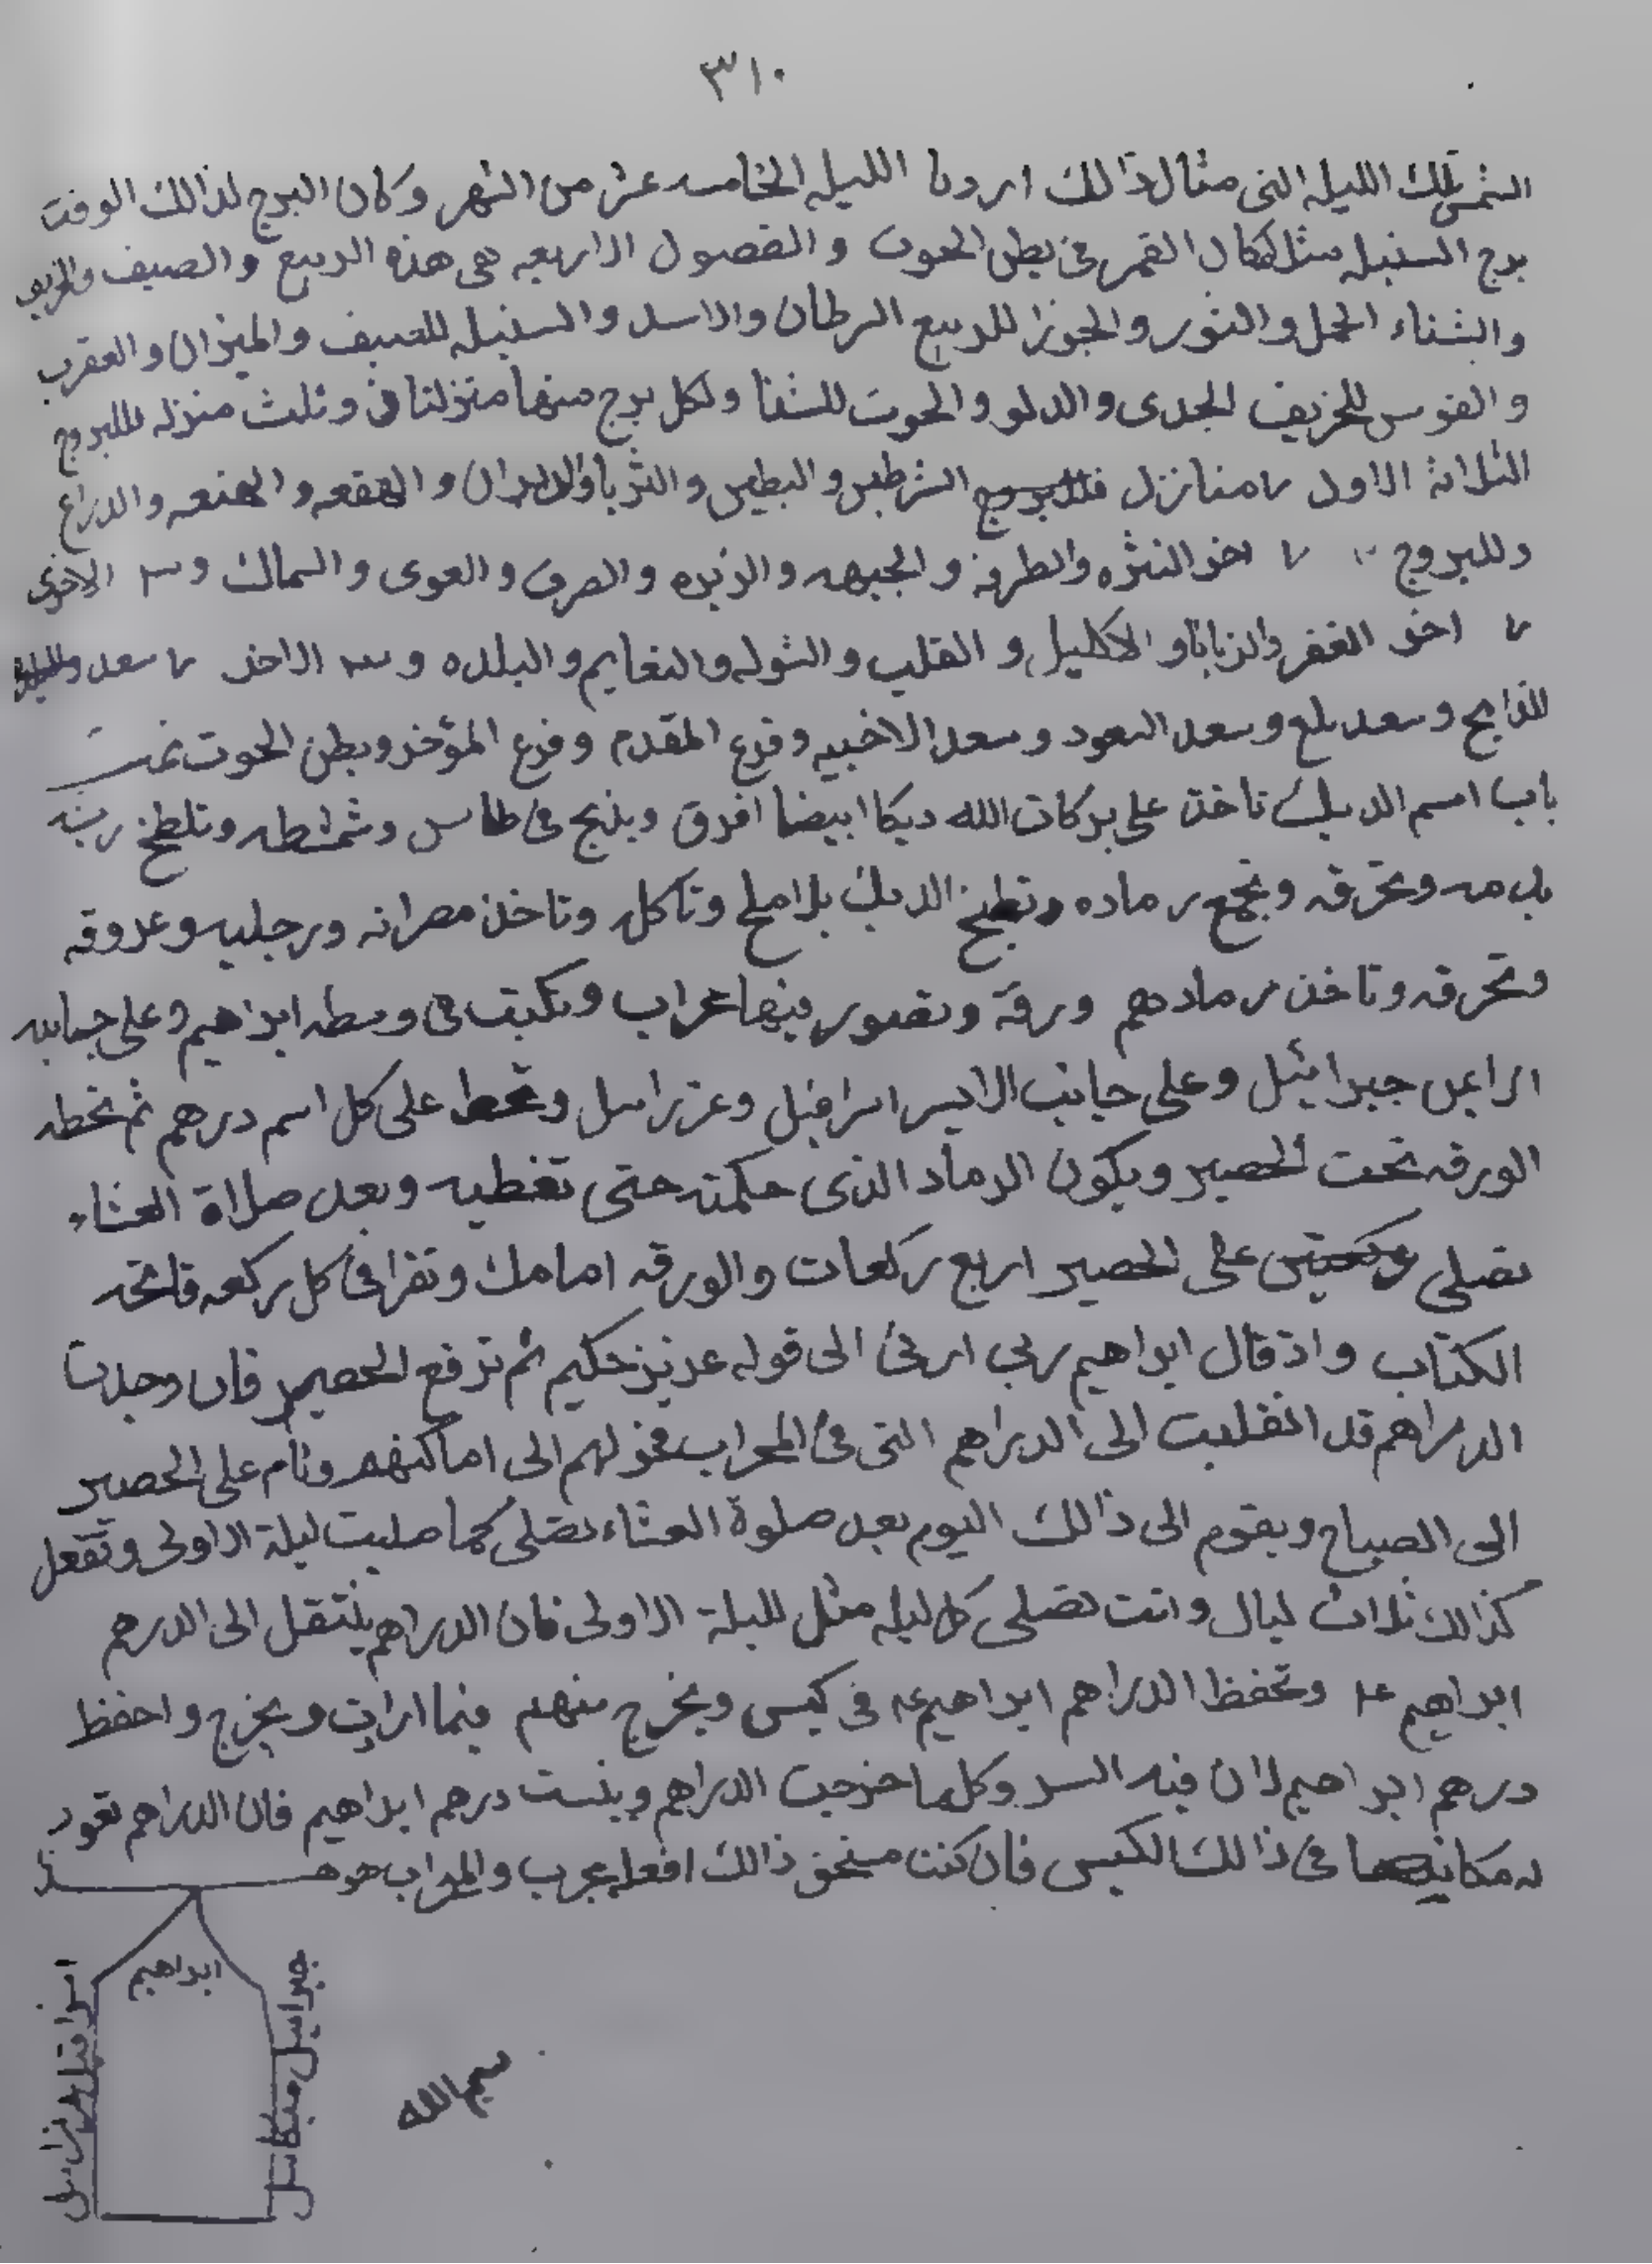 ٣١٠
الشمس تلك الليله التى مثال ذالك اردنا الليله الخامسه عشر من الشهر وكان البرج لذالك الوقت
برج السنبله مثلا كان القمر فى بطن الحوت والفصول الاربعه هى هذه الربيع والصيف والخريف
والشتاء الحمل والثور والجوزا للربيع السرطان والاسد والسنبله للصيف والميزان والعقرب
والقوس للخريف الجدى والدلو والحوت للشتا ولكل برج منها منزلتان وثلث منزله فللبروج
الثلاثة الاول ٧ منازل الشرطين والبطين والثريا والدبران والهقعه والهنعه والذراع
وللبروج ٣ ٧ اخر النثره والطرفه والجبهه والزبره والصرفه والعوى والسماك و٣ الاخرى
٧ اخر الغفر والزبانا والاكليل والقلب والشوله والنعايم والبلده و٣ الاخر ٧ سعد
الذابح وسعد بلع وسعد السعود وسعد الاخبيه وفرع المقدم وفرع المؤخر وبطن الحوت تمت
باب اسم الديك تاخذ على بركات الله ديكا ابيضا افرق ويذبح فى طاس وتلطخ ريشه
بدمه وتحرقه وتجمع رماده وتطبخ الديك بلا ملح وتاكله وتاخذ مصرانه ورجليه وعروقه
وتحرقه وتاخذ رمادهم ورقة وتصور فيها محراب وتكتب فى وسطه ابراهيم وعلى جانبه
الايمن جبرائيل وعلى جانب الايسر اسرافيل وعزرايل وتحط على كل اسم درهم ثم تحط
الورقه تحت الحصير ويكون الرماد الذى حكمته حتى تغطيه وبعد صلاة العشاء
تصلى على الحصير اربع ركعات والورقه امامك وتقرا فى كل ركعه فاتحه
الكتاب واذ قال ابراهيم ربى ارنى الى قوله عزيز حكيم ثم ترفع الحصير فان وجدت
الدراهم قد انقلبت الى الدراهم التى فى المحراب فحولهم الى اماكنهم ونام على الحصير
الى الصباح ويقوم الى ذالك اليوم بعد صلوة العشاء تصلى كما صليت ليلة الاولى وتفعل
كذالك ثلاث ليال وانت تصلى كل ليله مثل لليلة الاولى فان الدراهم ينتقل الى الدرهم
ابراهيم وتحفظ الدراهم ابراهيم فى كيس ويخرج منهم فيما ارات ويخرج واحفظ
درهم ابراهيم لان فيه السر وكلما خرجت الدراهم وبنت درهم ابراهيم فان الدراهم تعود
له مكانها فى ذالك الكيس فان كنت مستحق ذالك افعله يجرب والمحراب هو هــــذ
ابراهيم
جبرايل ميكايل
اسرافيل عزرايل
بسم الله